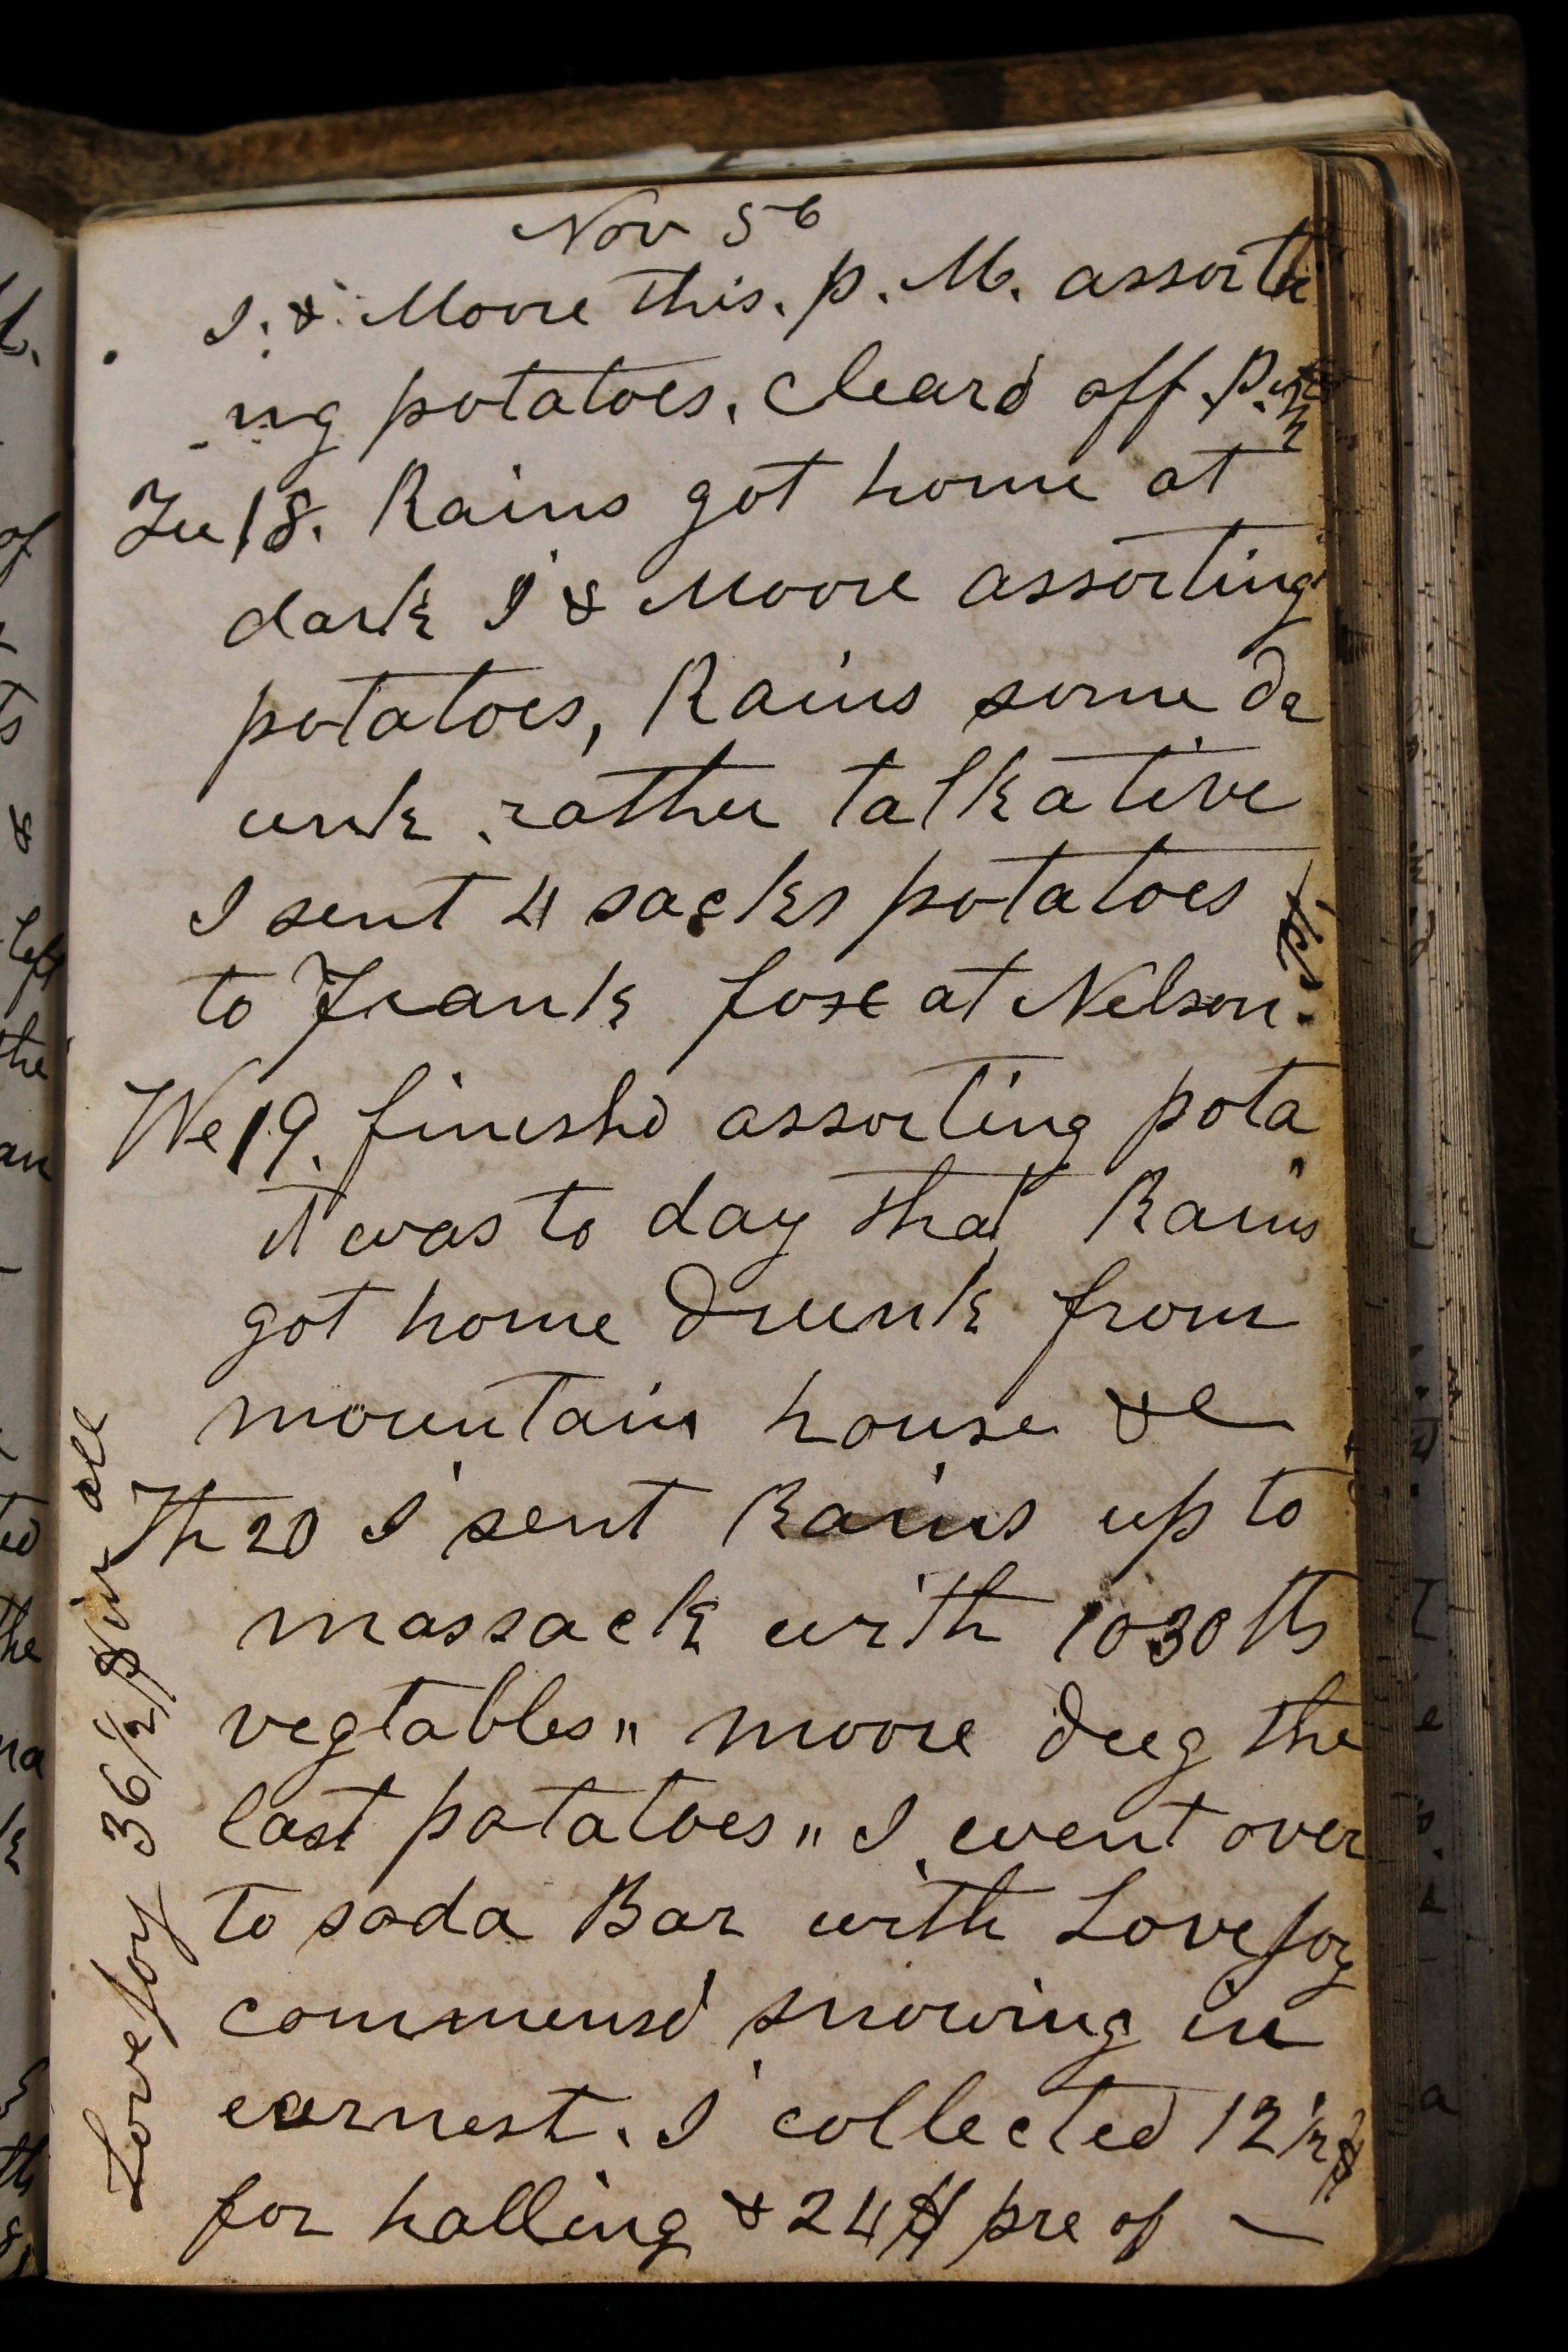 Nov 56
I. & Moore this. P. M. assorti
ng potatoes. Cleard off P.M
Tu 18. Rains got home at
dark I & Moore assorting
potatoes, Rains some dr
unk rather talkative
I sent 4 sacks potatoes
to Frank fose at Nelson.
We 19. finishd assorting pota"
it was to day that Rains
got home drunk from
mountain house &c
Th 20 I sent Rains up to
massack with 1030 lbs
vegtables" moore dug the
last potatoes" I went over
to soda Bar with Lovejoy
commensd snowing in
earnest. I collected 12 1/2 $
for halling & 24 $ pre of —
Lovejoy 36 1/2 $ in all